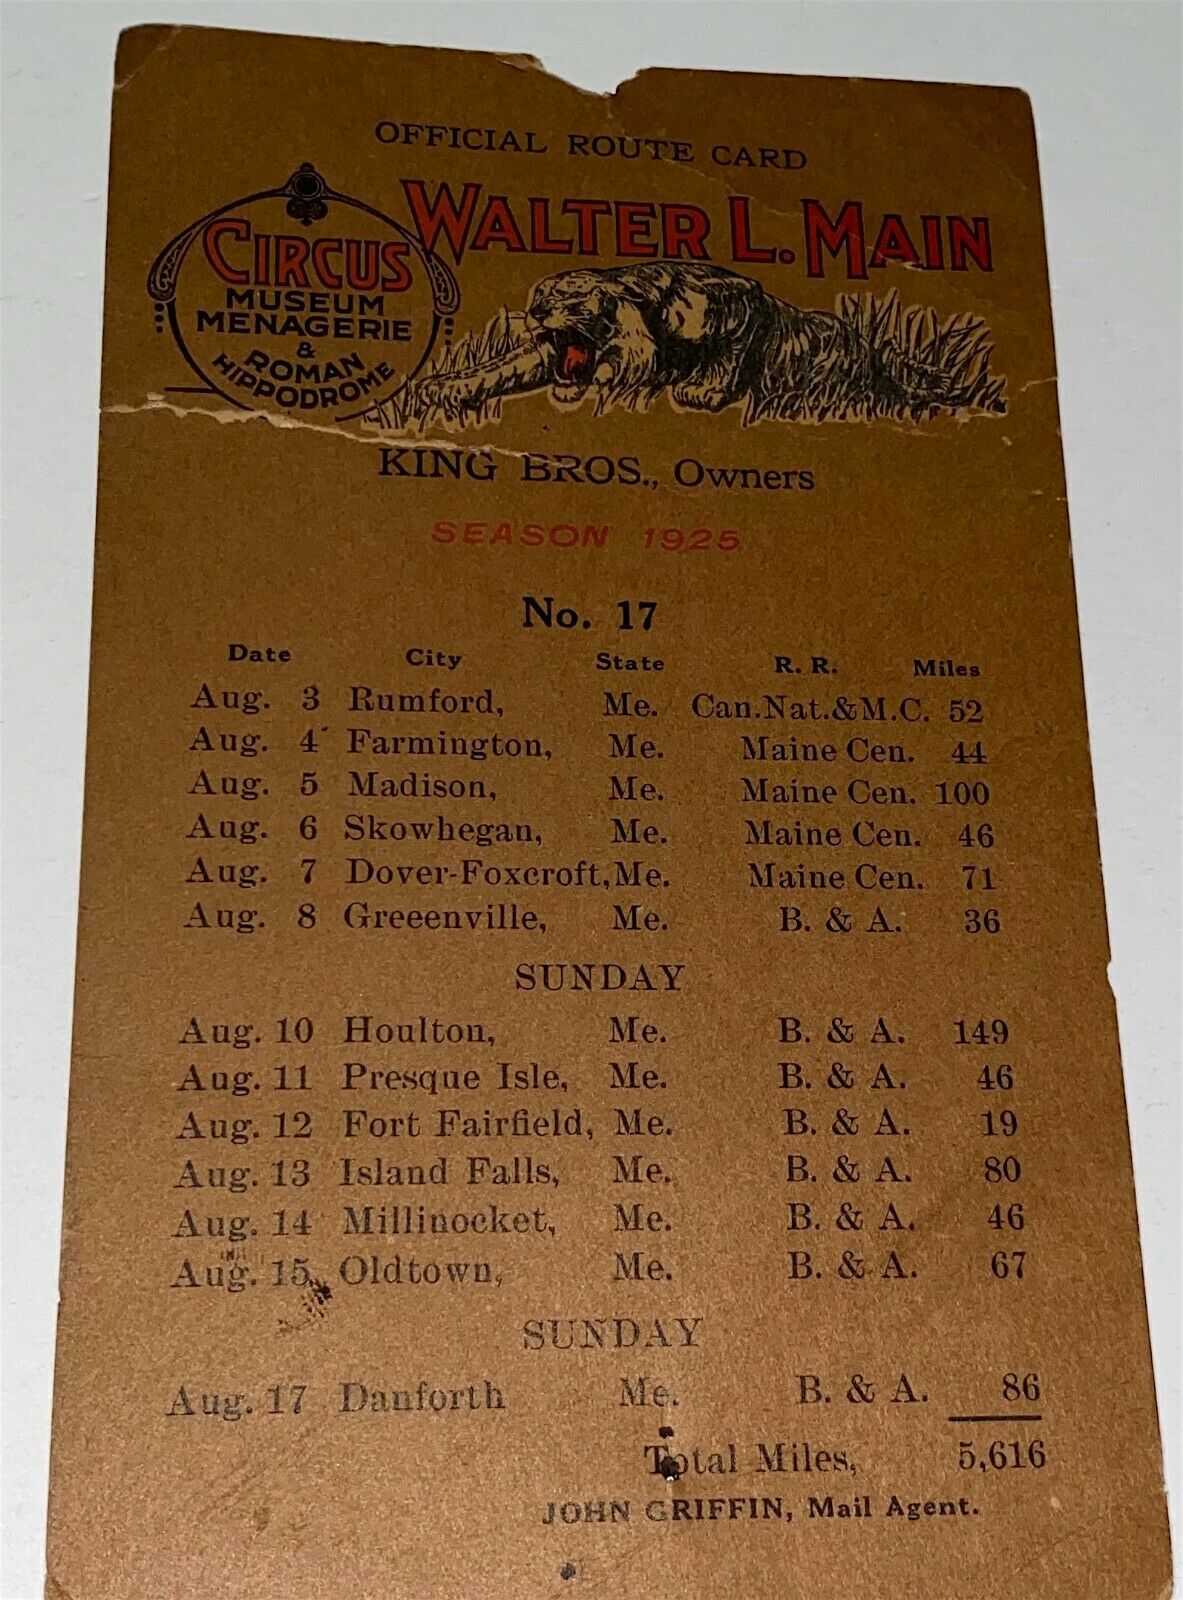 OFFICIAL ROUTE CARD
WALTER L. MAIN
CIRCUS
MUSEUM
MENAGERIE
&
ROMAN
HIPPODROME
KING BROS., Owners
SEASON 1925
No. 17
Date City State R. R. Miles
Aug. 3 Rumford, Me. Can.Nat.&M.C. 52
Aug. 4 Farmington, Me. Maine Cen. 44
Aug. 5 Madison, Me. Maine Cen. 100
Aug. 6 Skowhegan, Me. Maine Cen. 46
Aug. 7 Dover-Foxcroft, Me. Maine Cen. 71
Aug. 8 Greeenville, Me. B. & A. 36
SUNDAY
Aug. 10 Houlton, Me. B. & A. 149
Aug. 11 Presque Isle, Me. B. & A. 46
Aug. 12 Fort Fairfield, Me. B. & A. 19
Aug. 13 Island Falls, Me. B. & A. 80
Aug. 14 Millinocket, Me. B. & A. 46
Aug. 15 Oldtown, Me. B. & A. 67
SUNDAY
Aug. 17 Danforth Me. B. & A. 86
Total Miles, 5,616
JOHN GRIFFIN, Mail Agent.